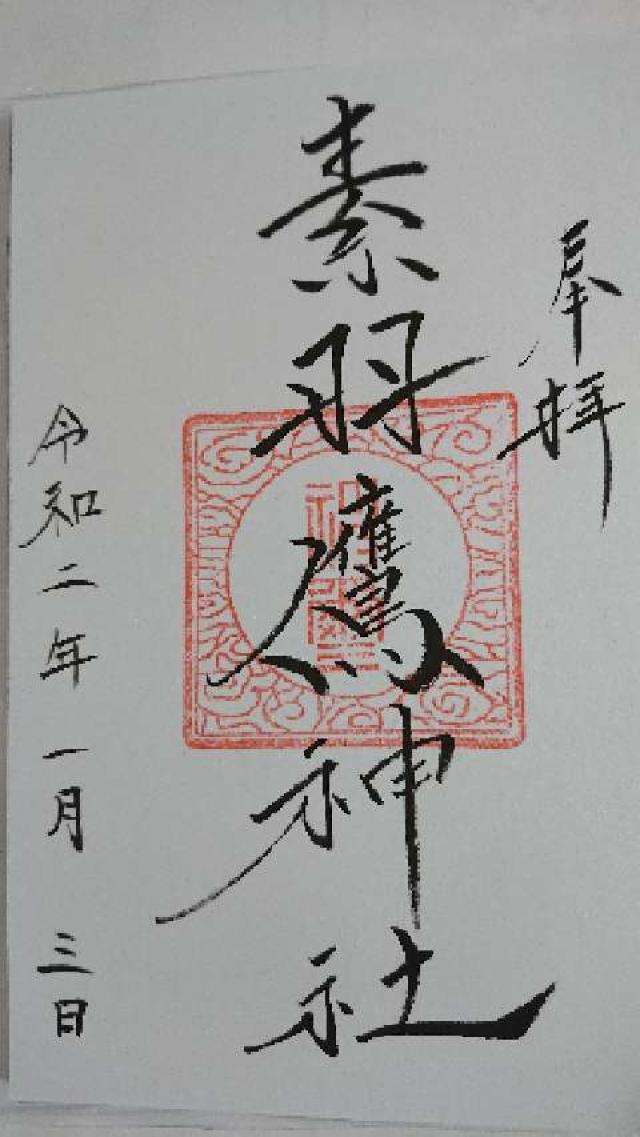 奉拝
素羽鷹神社
令和二年一月三日